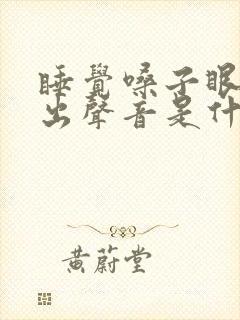 睡覺嗓子眼
出聲音是什
黃蔚堂